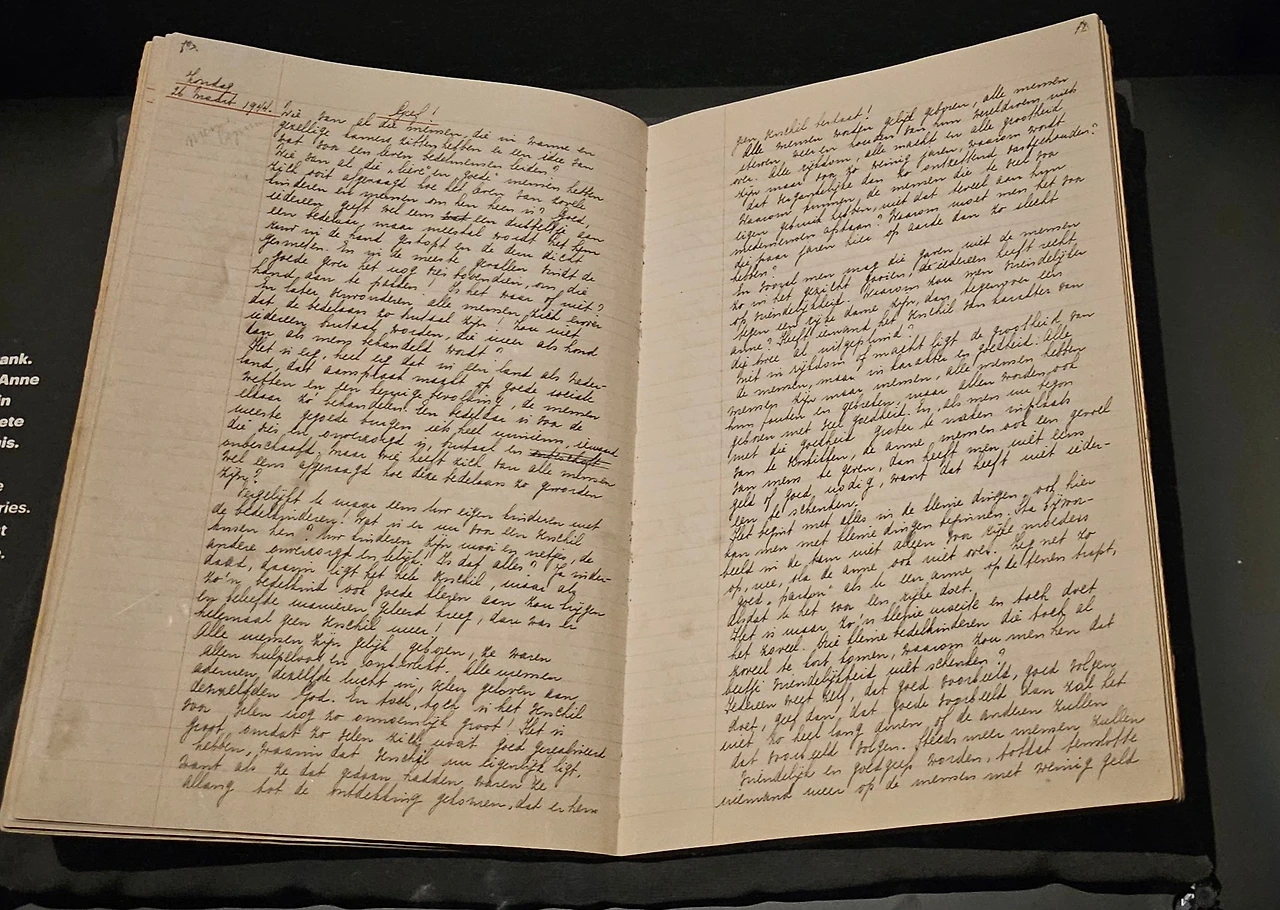 ank.
Anne
in
ete
is.
e
ries.
st
e.
Zondag
26 Maart 1944.
Geef!
Wie van al die mensen, die in warme en
gezellige kamers zitten hebben er een idee van
wat voor een leven bedelmensen leiden?
Wie van al die „lieve" en „goede" mensen hebben
zich ooit afgevraagd hoe het leven van zovele
kinderen en mensen om hen heen is? Goed,
iedereen geeft wel eens een dubbeltje aan
een bedelaar, maar meestal wordt het hem
ruw in de hand gestopt en de deur dicht
gesmeten. En in de meeste gevallen vindt de
goede gever het nog vies bovendien, om die
hand aan te pakken! Is het waar of niet?
En later verwonderen alle mensen zich erover
dat de bedelaars zo brutaal zijn! Zou niet
iedereen brutaal worden, die meer als hond
dan als mens behandeld wordt?
Het is erg, heel erg dat in een land als Neder-
land, dat aanspraak maakt op goede sociale
wetten en een degelijke bevolking, de mensen
elkaar zo behandelen. Een bedelaar is voor de
meeste gegoede burgers iets heel minders, iemand
die vies en onverzorgd is, brutaal en
onbeschaafd. Maar wie heeft zich van alle mensen
wel eens afgevraagd hoe deze bedelaars zo geworden
zijn?
Vergelijkt U maar eens Uw eigen kinderen met
de bedelkinderen! Wat is er nu voor een verschil
tussen hen? Uw kinderen zijn mooi en netjes, de
andere onverzorgd en lelijk! Is dat alles? Ja inder-
daad, daarin ligt het hele verschil, maar als
zo'n bedelkind ook goede kleren aan zou krijgen
en beleefde manieren geleerd kreeg, dan was er
helemaal geen verschil meer!
Alle mensen zijn gelijk geboren, ze waren
allen hulpeloos en onbevlekt. Alle mensen
ademen dezelfde lucht in, velen geloven aan
dezelfden God. En toch, toch is het verschil
voor velen nog zo onnoemlijk groot! Het is
groot, omdat zo velen zich nooit goed gerealiseerd
hebben, waarin dat verschil nu eigenlijk ligt,
want als ze dat gedaan hadden, waren ze
allang tot de ontdekking gekomen, dat er hem
geen verschil bestaat!
Alle mensen worden gelijk geboren, alle mensen
sterven, weer en houden van hun wereldroem niets
over. Alle rijkdom, alle macht en alle grootheid,
zijn maar voor zo weinig jaren, waarom wordt
dat vergankelijke dan zo ontzettend vastgehouden?
Waarom kunnen de mensen die te veel voor
eigen gebruik hebben, niet dat teveel aan hun
medemensen afstaan? Waarom moet men het voor
die paar jaren hier op aarde dan zo slecht
hebben?
En vooral men mag die gaven niet de mensen
zo in het gezicht gooien, iedereen heeft recht
op vriendelijkheid. Waarom zou men vriendelijker
tegen een rijke dame zijn, dan tegenover een
arme? Heeft iemand het verschil van karakter van
die twee al uitgeplozen?
Niet in rijkdom of macht ligt de grootheid van
de mensen, maar in karakter en goedheid. Alle
mensen zijn maar mensen, alle mensen hebben
hun fouten en gebreken, maar allen worden ook
geboren met veel goedheid. En als men nu begon
met die goedheid groter te maken inplaats
van te verstikken, de arme mensen ook een gevoel
van mens te geven, dan heeft men niet eens
geld of goed nodig, want dat heeft niet ieder-
een te schenken.
Het begint met alles in de kleine dingen, ook hier
kan men met kleine dingen beginnen. Sta bijvoor-
beeld in de tram niet alleen voor rijke moeders
op, nee, sla de arme ook niet over. Zeg net zo
goed „pardon" als U een arme op de tenen trapt,
alsdat U het voor een rijke doet.
Het is maar zo'n kleine moeite en toch doet
het zoveel. Die kleine bedelkinderen die toch al
zoveel te kort komen, waarom zou men hen dat
beetje vriendelijkheid niet schenken?
Iedereen weet zelf, dat goed voorbeeld, goed volgen
doet, geef dan, dat goede voorbeeld dan zal het
niet zo heel lang duren of de anderen zullen
dat voorbeeld volgen. Steeds meer mensen zullen
vriendelijk en goedgeefs worden, totdat tenslotte
niemand meer op de mensen met weinig geld